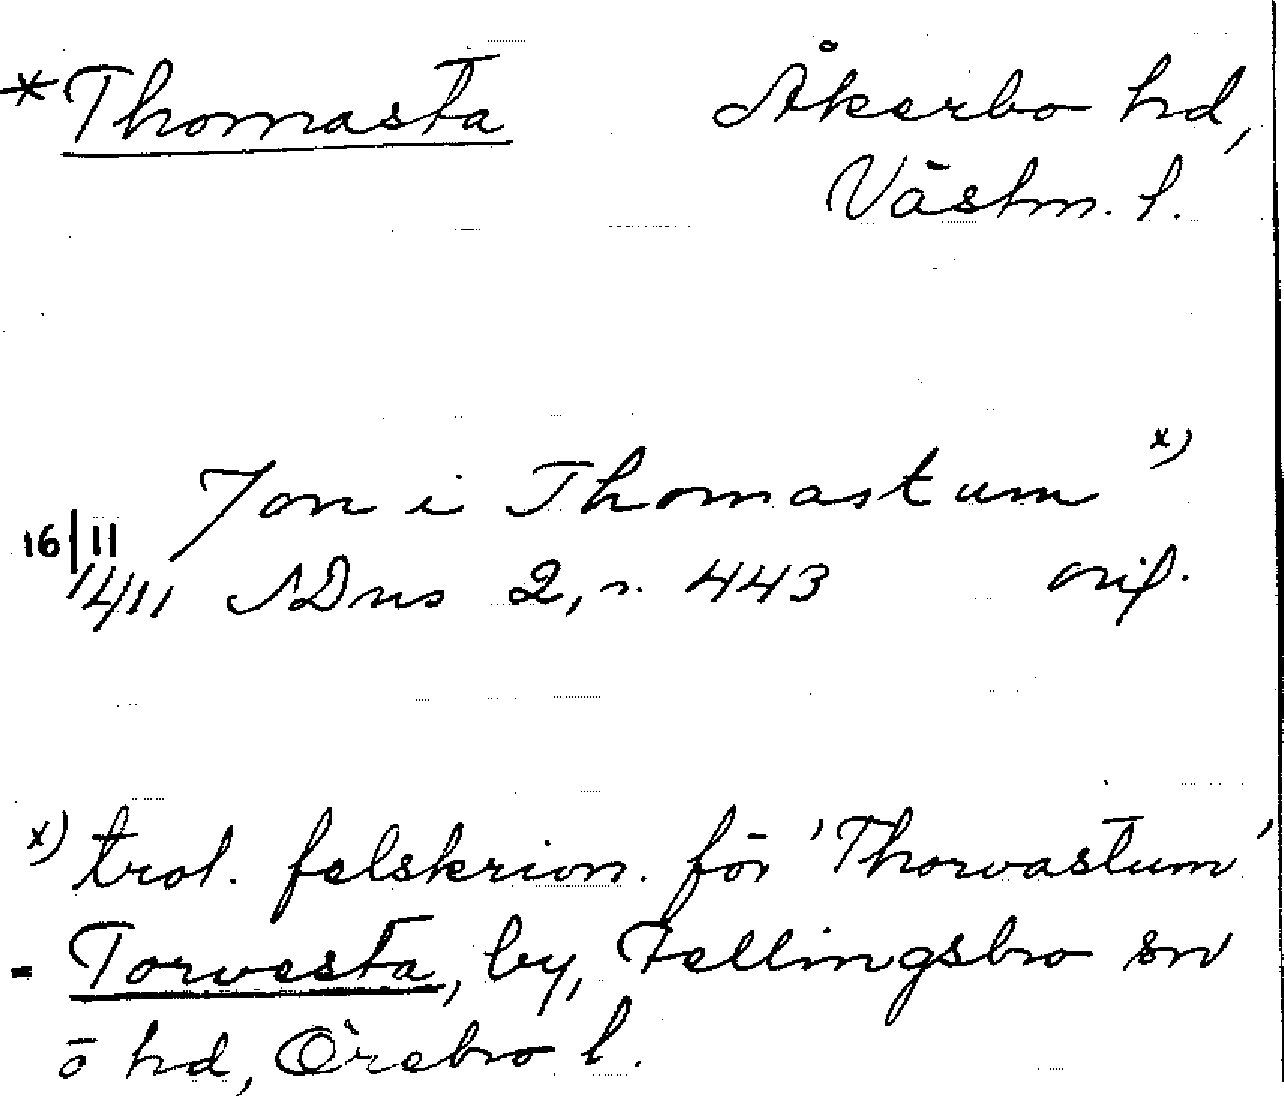 *Thomasta Åkerbo hd,
Västm. l.
Jon i Thomastum x)
16/11
1411 SDns 2, n. 443 orig.
x) trol. felskrivn. för 'Thorvastum'
= Torvesta, by, Fellingsbro sn
ö hd, Örebro l.